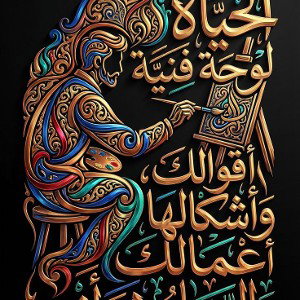 الحياة
لوحة فنية
أقوالك
وأشكالها
أعمالك